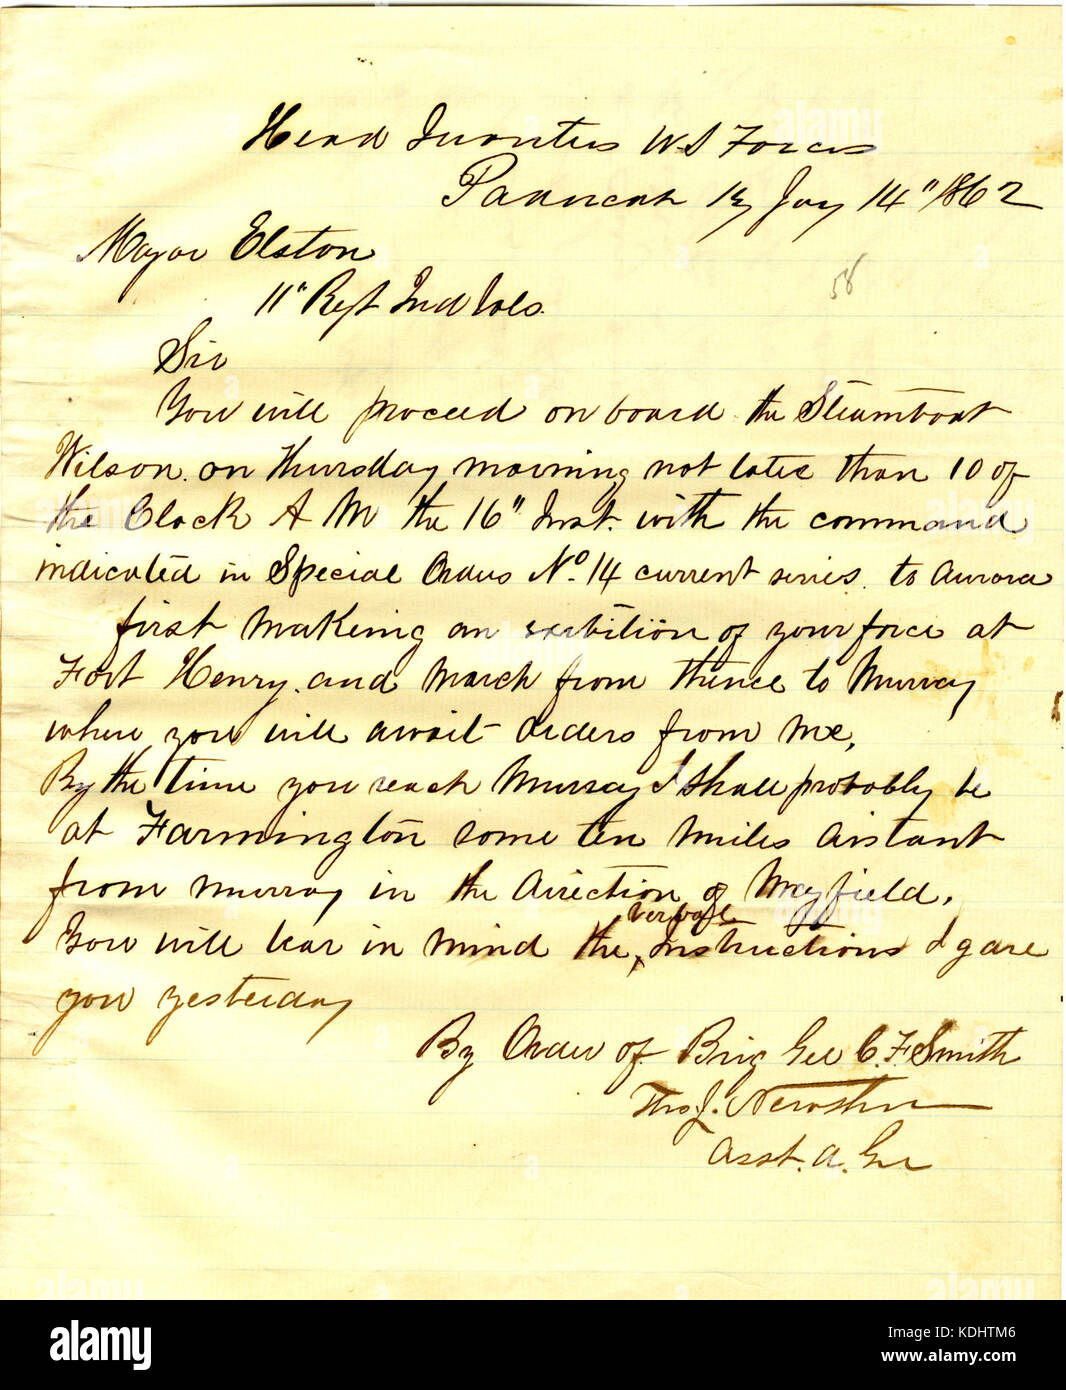 Head Quarters U S Forces
Paducah Ky Jay 14" 1862
Major Elston
58
11" Regt Ind Vols.
Sir
You will proceed on board the Steamboat
Wilson on Thursday morning not later than 10 of
the Clock A M the 16" Inst. with the command
indicated in Special Orders No. 14 current series. to Aurora
first makeing an exibition of your force at
Fort Henry. and march from thence to Murray
where you will await orders from me.
By the time you reach Murray I shall probably be
at Farmington some ten miles distant
from Murray in the direction of Mayfield.
You will bear in mind the verbal instructions I gave
you yesterday
By Order of Brig Gel C. F. Smith
Thos J. Newsham
Asst. A. Gel
alamy
Image ID: KDHTM6
www.alamy.com